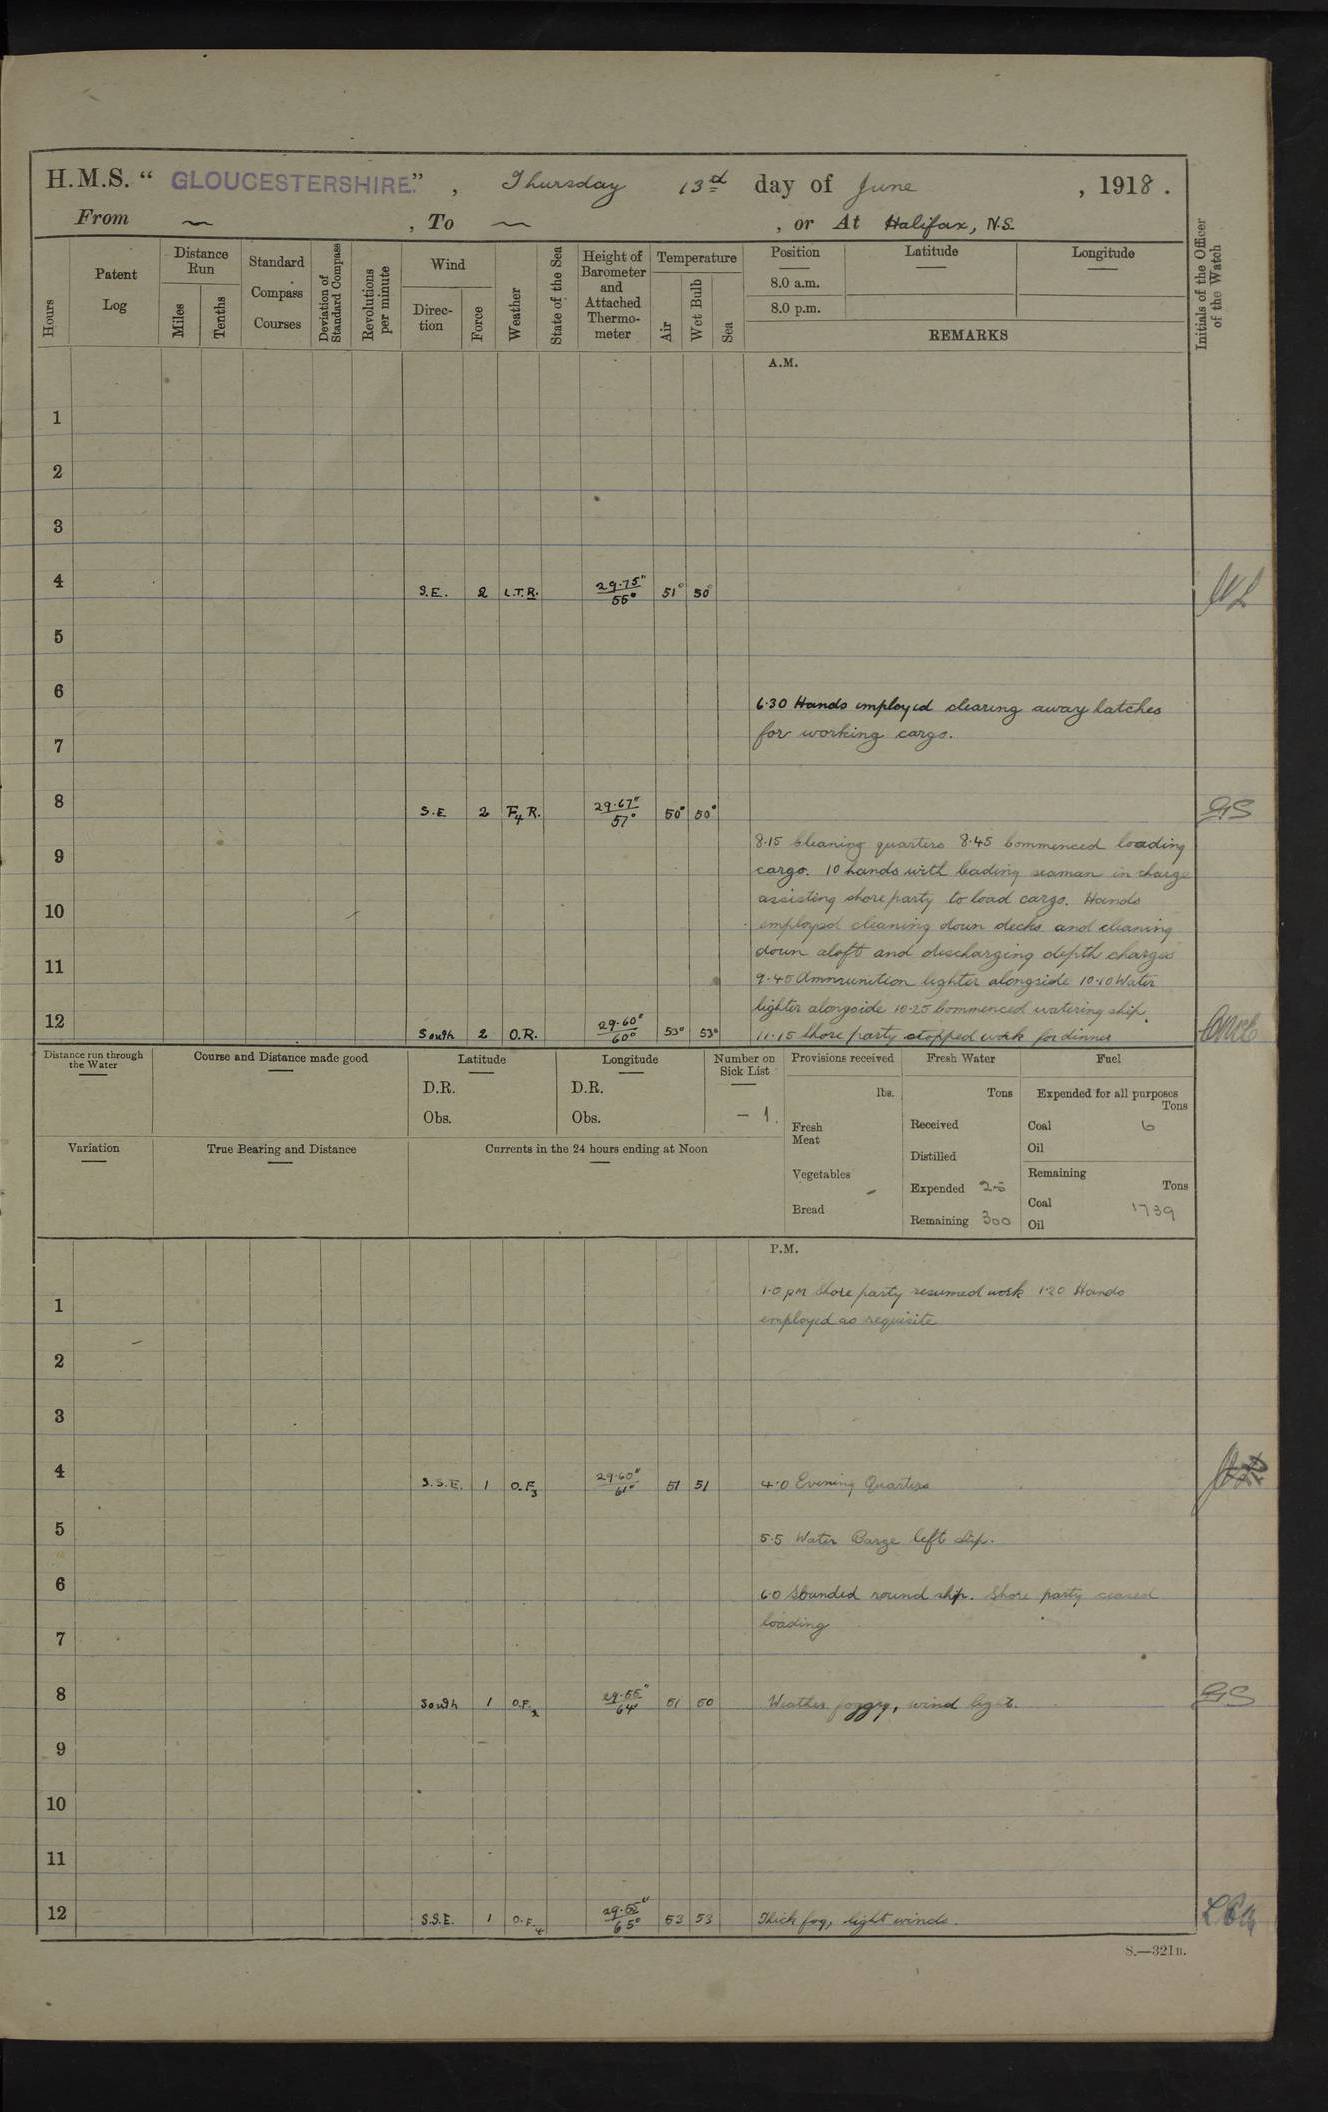 H.M.S. “ GLOUCESTERSHIRE.” , Thursday 13th day of June , 1918 .
From ~ , To ~ , or At Halifax, N.S.
Hours
Patent Log
Distance Run
Miles
Tenths
Standard Compass Courses
Deviation of Standard Compass
Revolutions per minute
Wind
Direction
Force
Weather
State of the Sea
Height of Barometer and Attached Thermometer
Temperature
Air
Wet Bulb
Sea
Position
8.0 a.m.
8.0 p.m.
Latitude
Longitude
REMARKS
Initials of the Officer of the Watch
A.M.
1
2
3
4 S.E. 2 L.T.R. 29·75" 55° 51° 50°
5
6
6·30 Hands employed clearing away hatches
for working cargo.
7
8 S.E 2 F4 R. 29·67" 57° 50° 50° GS
8·15 Cleaning quarters 8·45 Commenced loading
9
cargo. 10 hands with leading seaman in charge
assisting shore party to load cargo. Hands
10
employed cleaning down decks and cleaning
down aloft and discharging depth charges
11
9·45 Ammunition lighter alongside 10·10 Water
lighter alongside 10·25 Commenced watering ship.
12 South 2 O.R. 29·60" 60° 53° 53° 11·15 Shore party stopped work for dinner
Distance run through the Water
Course and Distance made good
Latitude
D.R.
Obs.
Longitude
D.R.
Obs.
Number on Sick List
– 1.
Provisions received
lbs.
Fresh Meat
Vegetables
Bread
Fresh Water
Tons
Received
Distilled
Expended 25
Remaining 300
Fuel
Expended for all purposes
Tons
Coal 6
Oil
Remaining
Tons
Coal 1739
Oil
Variation
True Bearing and Distance
Currents in the 24 hours ending at Noon
P.M.
1·0 pm Shore party resumed work 1·20 Hands
1
employed as requisite
2
3
4 S.S.E. 1 O.F3 29·60" 61° 51 51 4·0 Evening Quarters
5
5·5 Water Barge left ship.
6
6·0 Sounded round ship. Shore party ceased
loading
7
8 South 1 O.F.2 29·55" 64° 51 50 Weather foggy, wind light. GS
9
10
11
12 S.S.E. 1 O.F.4 29·55" 65° 53 53 Thick fog, light winds.
S.—321B.